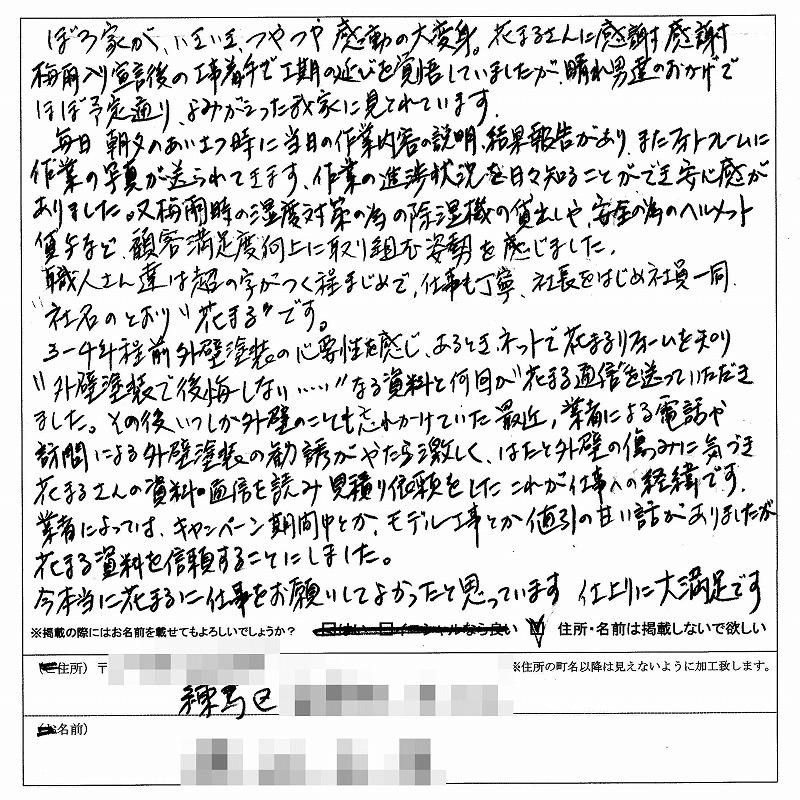 ぼろ家が、いきいき、つやつや 感動の大変身。花まるさんに感謝す 感謝す
梅雨入り宣言後の工事着手で工期の延びを覚悟していましたが、晴れ男達のおかげで
ほぼ予定通り、よみがえった我家に見とれています。
毎日 朝夕のあいさつ時に当日の作業内容の説明、結果報告があり、またフォトフレームに
作業の写真が送られてきます、作業の進渉状況を日々知ることができ安心感が
ありました。又梅雨時の湿度対策の為の除湿機の貸出しや、安全の為のヘルメット
貸与など、顧客満足度向上に取り組む姿勢を感じました。
職人さん達は超の字がつく程まじめで、仕事も丁寧、社長をはじめ社員一同、
"社名のとおり" 花まる"です。
3~4年程前外壁塗装の必要性を感じ、あるとき、ネットで花まるリフォームを知り
"外壁塗装で後悔しない……"なる資料と何回か"花まる通信"を送っていただき
ました。その後いつしか外壁のことも忘れかけていた最近、業者による電話や
訪問による外壁塗装の勧誘がやたら激しく、はたと外壁の傷みに気づき
花まるさんの資料・通信を読み 見積り依頼をした これが仕事への経緯です。
業者によっては、キャンペーン期間中とか、モデル工事とか値引の甘い話がありましたが
花まる資料を信頼することにしました。
今本当に花まるに仕事をお願いしてよかったと思っています 仕上りに大満足です
※掲載の際にはお名前を載せてもよろしいでしょうか? □はい □イニシャルなら良い ☑ 住所・名前は掲載しないで欲しい
(ご住所) 〒 ※住所の町名以降は見えないように加工致します。
練馬区
(お名前)